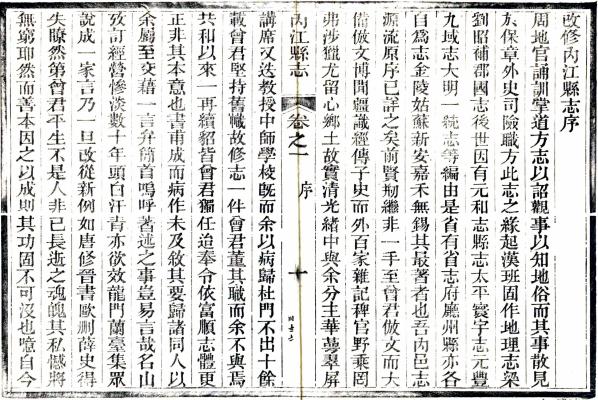 改修內江縣志序
周地官誦訓掌道方志以詔觀事以知地俗而其事散見
於保章外史司險職方此志之緣起漢班固作地理志梁
劉昭補郡國志後世因有元和志縣志太平寰宇志元豐
九域志大明一統志等編由是省有省志府廳州縣亦各
自爲志金陵姑蘇新安嘉禾無錫其最著者也吾內邑志
源流原序已詳之矣前賢刱繼非一手至曾君倣文而大
備倣文博聞彊識經傳子史而外百家雜記稗官野乘罔
弗涉獵尤留心鄉土故實清光緒中與余分主華蕚翠屏
內江縣志 卷之一 序 十
講席又迭教授中師學校旣而余以病歸杜門不出十餘
載曾君堅持舊幟故修志一件曾君董其職而余不與焉
共和以來一再續貂皆曾君獨任迨奉令依富順志體更
正非其本意也書甫成而病作未及敘其要歸諸同人以
余屬至交藉一言弁簡首嗚呼著述之事豈易言哉名山
攷訂經營慘淡數十年頭白汗靑亦欲效龍門蘭臺集眾
說成一家言乃一旦改從新例如唐修晉書歐刪薛史得
失瞭然第曾君平生不是人非己長逝之魂魄其私憾將
無窮耶然而善本因之以成則其功固不可沒也噫自今